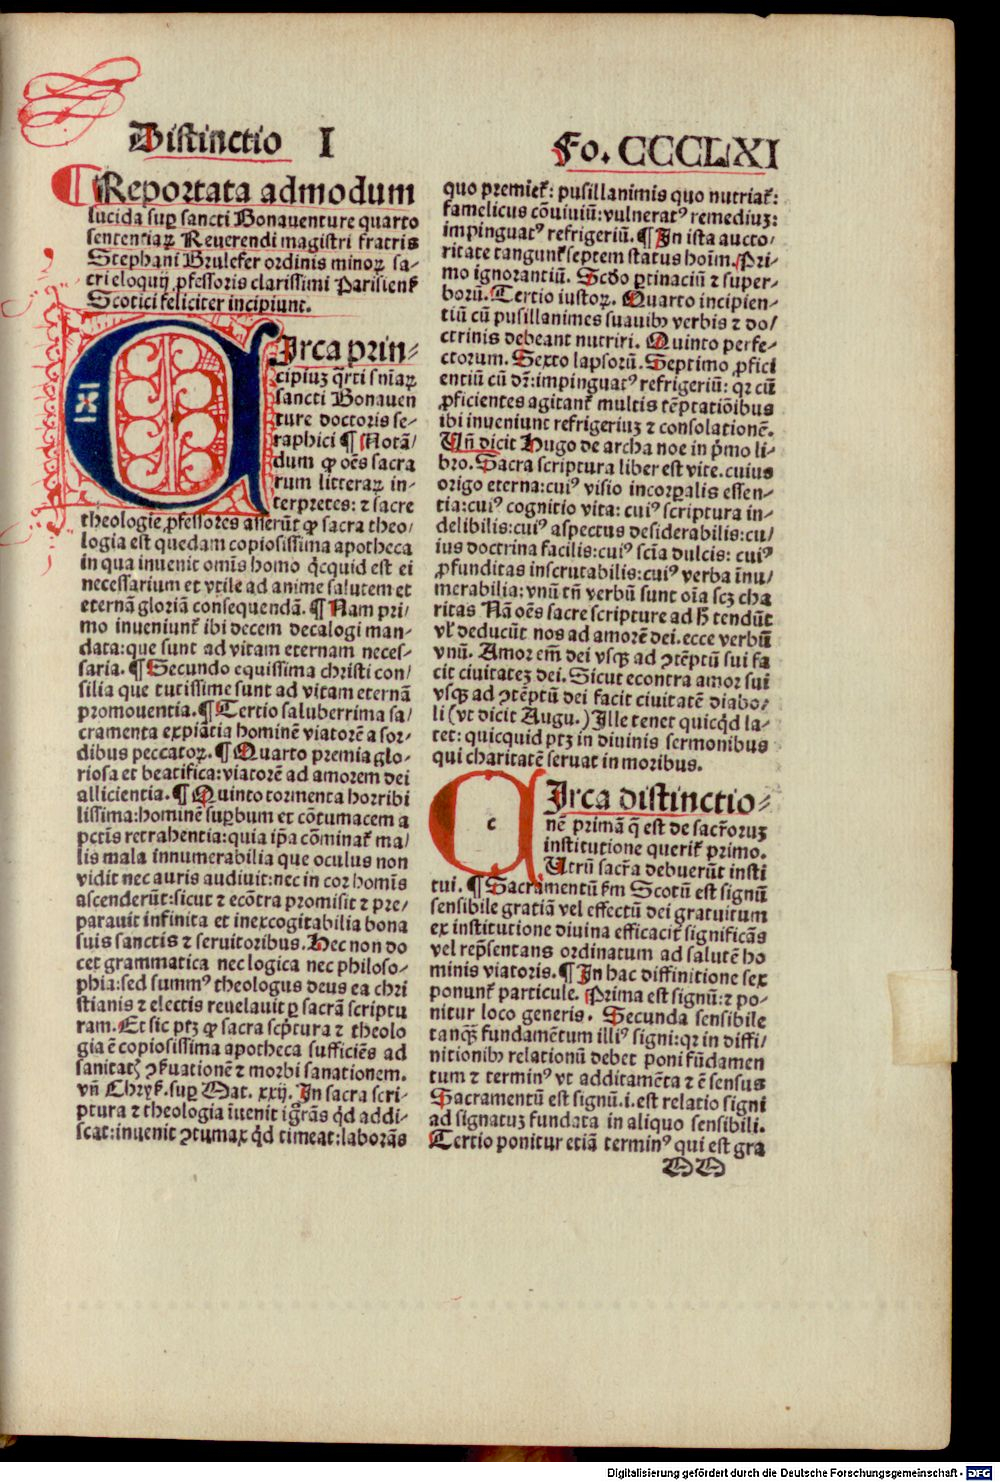 Distinctio I
Fo. CCCCLXI
¶ Reportata admodum
lucida suꝑ sancti Bonauenture quarto
sententiaꝝ Reuerendi magistri fratris
Stephani Brulefer ordinis minoꝝ sa-
cri eloquij ꝓfessoris clarissimi Parisienß
Scotici feliciter incipiunt.
CIrca prin-
cipiuꝫ q̈rti sniaꝝ
sancti Bonauen
ture doctoris se-
raphici ¶ Notā/
dum ꝙ oēs sacra
rum litteraꝝ in-
terpretes: ⁊ sacre
theologie ꝓfessores asserūt ꝙ sacra theo/
logia est quedam copiosissima apotheca
in qua inuenit omīs homo q̇cquid est ei
necessarium et vtile ad anime salutem et
eternā gloriā consequendā. ¶ Nam pri-
mo inueniunt̃ ibi decem decalogi man-
data: que sunt ad vitam eternam neces-
saria. ¶ Secundo equissima christi con/
silia que tutissime sunt ad vitam eternā
promouentia. ¶ Tertio saluberrima sa/
cramenta expiātia hominē viatorē a sor-
dibus peccatoꝝ. ¶ Quarto premia glo-
riosa et beatifica: viatorē ad amorem dei
allicientia. ¶ Quinto tormenta horribi
lissima: hominē suꝑbum et cōtumacem a
pctīs retrahentia: quia ip̄a cōminat̃ ma/
lis mala innumerabilia que oculus non
vidit nec auris audiuit: nec in cor homīs
ascenderūt: sicut ⁊ ecōtra promisit ⁊ pre/
parauit infinita et inexcogitabilia bona
suis sanctis ⁊ seruitoribus. Hec non do
cet grammatica nec logica nec philoso/
phia: sed summꝰ theologus deus ea chri
stianis ⁊ electis reuelauit ꝑ sacrā scriptu
ram. Et sic ptꝫ ꝙ sacra scp̄tura ⁊ theolo
gia ē copiosissima apotheca sufficiēs ad
sanitatꝭ ꝯẜuationē ⁊ morbi sanationem.
vn̄ Chryß. suꝑ Mat. xxij. In sacra scri-
ptura ⁊ theologia īuenit igr̄ās q̇d addi-
scat: inuenit ꝯtumax q̇d timeat: laborās
quo premiet̃: pusillanimis quo nutriat̃:
famelicus cōuiuiū: vulneratꝰ remediuꝫ:
impinguatꝰ refrigeriū. ¶ In ista aucto/
ritate tangunt̃ septem status hoīm. Pri-
mo ignorantiū. Scd̄o ꝑtinaciū ⁊ super-
borū. Tertio iustoꝝ. Quarto incipien-
tiū cū pusillanimes suauibꝫ verbis ⁊ do/
ctrinis debeant nutriri. Quinto perfe-
ctorum. Sexto lapsorū. Septimo ꝓfici
entiū cū dr̄: impinguatꝰ refrigeriū: qꝛ cū
ꝓficientes agitant̃ multis tēptatiōibus
ibi inueniunt refrigeriuꝫ ⁊ consolationē.
Vn̄ dicit Hugo de archa noe in p̄mo li-
bro. Sacra scriptura liber est vite. cuius
origo eterna: cuiꝰ visio incorꝑalis essen-
tia: cuiꝰ cognitio vita: cuiꝰ scriptura in-
delibilis: cuiꝰ aspectus desiderabilis: cu/
ius doctrina facilis: cuiꝰ scīa dulcis: cuiꝰ
ꝓfunditas inscrutabilis: cuiꝰ verba īnu/
merabilia: vnū tn̄ verbū sunt oīa scꝫ cha
ritas Nā oēs sacre scripture ad ħ tendūt
vł deducūt nos ad amorē dei. ecce verbū
vnū. Amor em̄ dei vsqꝫ ad ꝯtēptū sui fa
cit ciuitateꝫ dei. Sicut econtra amor sui
vsqꝫ ad ꝯtēptū dei facit ciuitatē diabo-
li (vt dicit Augu.) Ille tenet quicq̇d la-
tet: quicquid ptꝫ in diuinis sermonibus
qui charitatē seruat in moribus.
CIrca distinctio-
nē primā q̄ est de sacr̄oruꝫ
institutione querit̃ primo.
Utrū sacr̄a debuerūt insti
tui. ¶ Sacramentū ẜm Scotū est signū
sensibile gratiā vel effectū dei gratuitum
ex institutione diuina efficacit̃ significās
vel rep̄sentans ordinatum ad salutē ho
minis viatoris. ¶ In hac diffinitione sex
ponunt̃ particule. Prima est signū: ⁊ po-
nitur loco generis. Secunda sensibile
tanqꝫ̄ fundamētum illiꝰ signi: qꝛ in diffi/
nitionibꝫ relationū debet poni fūdamen
tum ⁊ terminꝰ vt additamēta ⁊ ē sensus
Sacramentū est signū .i. est relatio signi
ad signatuꝫ fundata in aliquo sensibili.
Tertio ponitur etiā terminꝰ qui est gra
MM
Digitalisierung gefördert durch die Deutsche Forschungsgemeinschaft - DFG